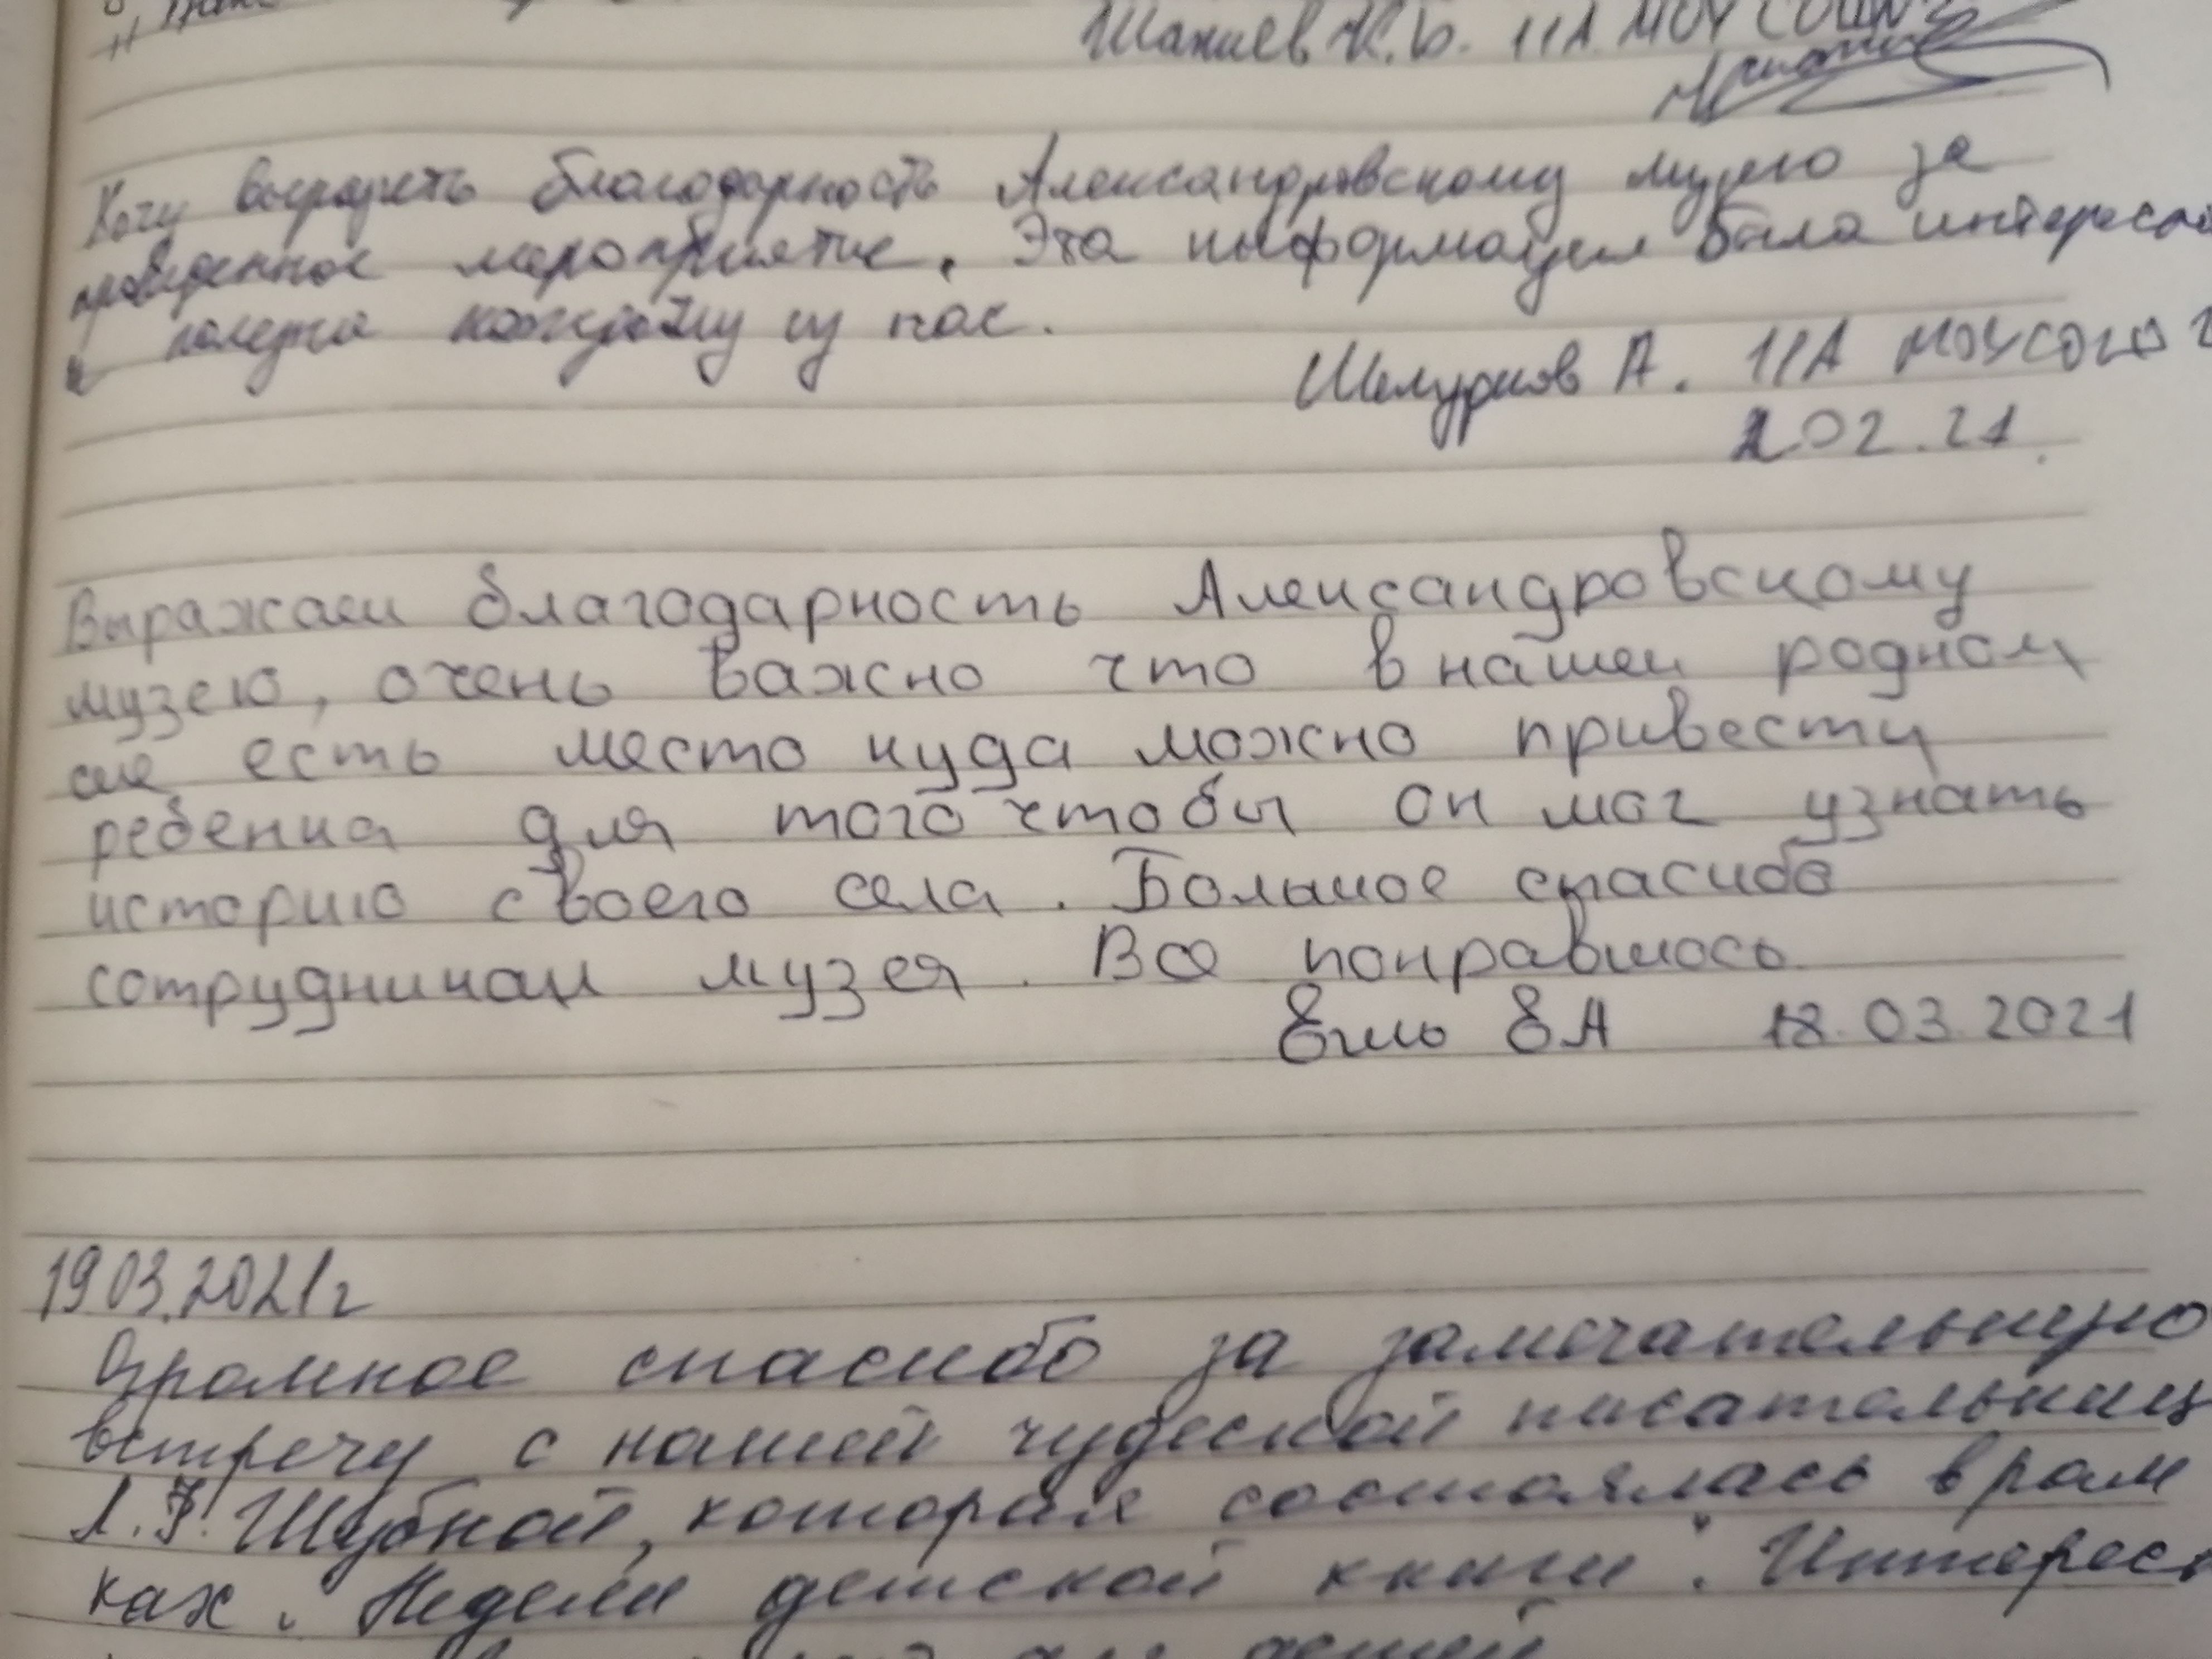 Шаниев К.Б. 11А МОУ СОШ№2
Хочу выразить благодарность Александровскому музею за
проведенное мероприятие. Эта информация была интересной
и полезна каждому из нас.
А. 11А МОУСОШ 2
02.21
Выражаем благодарность Александровскому
музею, очень важно что в нашем родном
селе есть место куда можно привести
ребенка для того чтобы он мог узнать
историю своего села. Большое спасибо
сотрудникам музея. Все понравилось
ЕА 18.03.2021
19.03.2021г
Огромное спасибо за замечательную
встречу с нашей чудесной писательниц
Л.Ф. Шубной, которая состоялась в рам
ках. Недели детской книги. Интерес
для детей